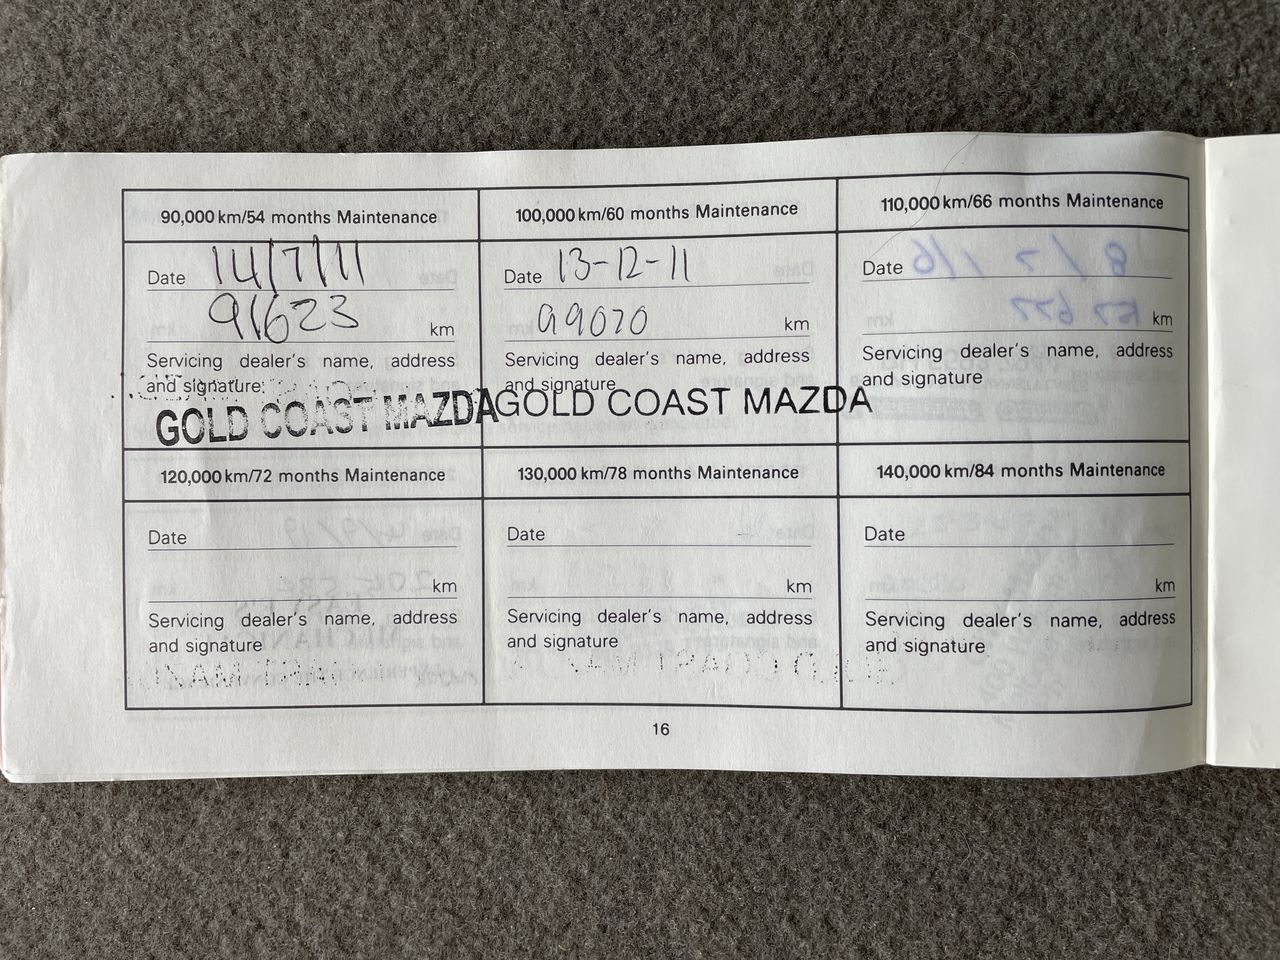 90,000 km/54 months Maintenance
Date 14/7/11
91623 km
Servicing dealer's name, address
and signature:
GOLD COAST MAZDA
100,000 km/60 months Maintenance
Date 13-12-11
99070 km
Servicing dealer's name, address
and signature
GOLD COAST MAZDA
110,000 km/66 months Maintenance
Date
km
Servicing dealer's name, address
and signature
120,000 km/72 months Maintenance
Date
km
Servicing dealer's name, address
and signature
130,000 km/78 months Maintenance
Date
km
Servicing dealer's name, address
and signature
140,000 km/84 months Maintenance
Date
km
Servicing dealer's name, address
and signature
16